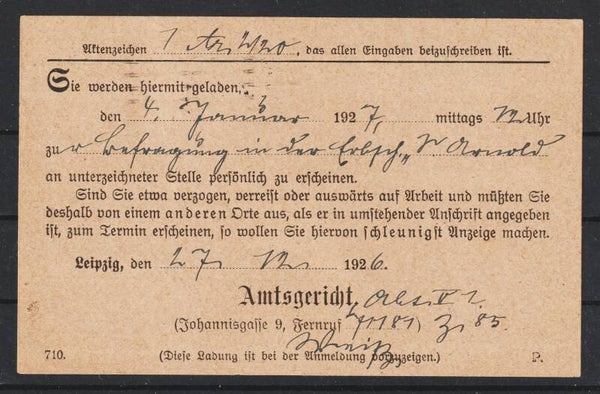 Aktenzeichen 1 , das allen Eingaben beizuschreiben ist.
Sie werden hiermit geladen,
den 4. Januar 1927, mittags 12 Uhr
zur Befragung in der Erbsch. Arnold
an unterzeichneter Stelle persönlich zu erscheinen.
Sind Sie etwa verzogen, verreist oder auswärts auf Arbeit und müßten Sie
deshalb von einem anderen Orte aus, als er in umstehender Anschrift angegeben
ist, zum Termin erscheinen, so wollen Sie hiervon schleunigst Anzeige machen.
Leipzig, den 27. 12. 1926.
Amtsgericht, Abt. V
(Johannisgasse 9, Fernruf 71181) Z. 85.
(Diese Ladung ist bei der Anmeldung vorzuzeigen.)
710. P.